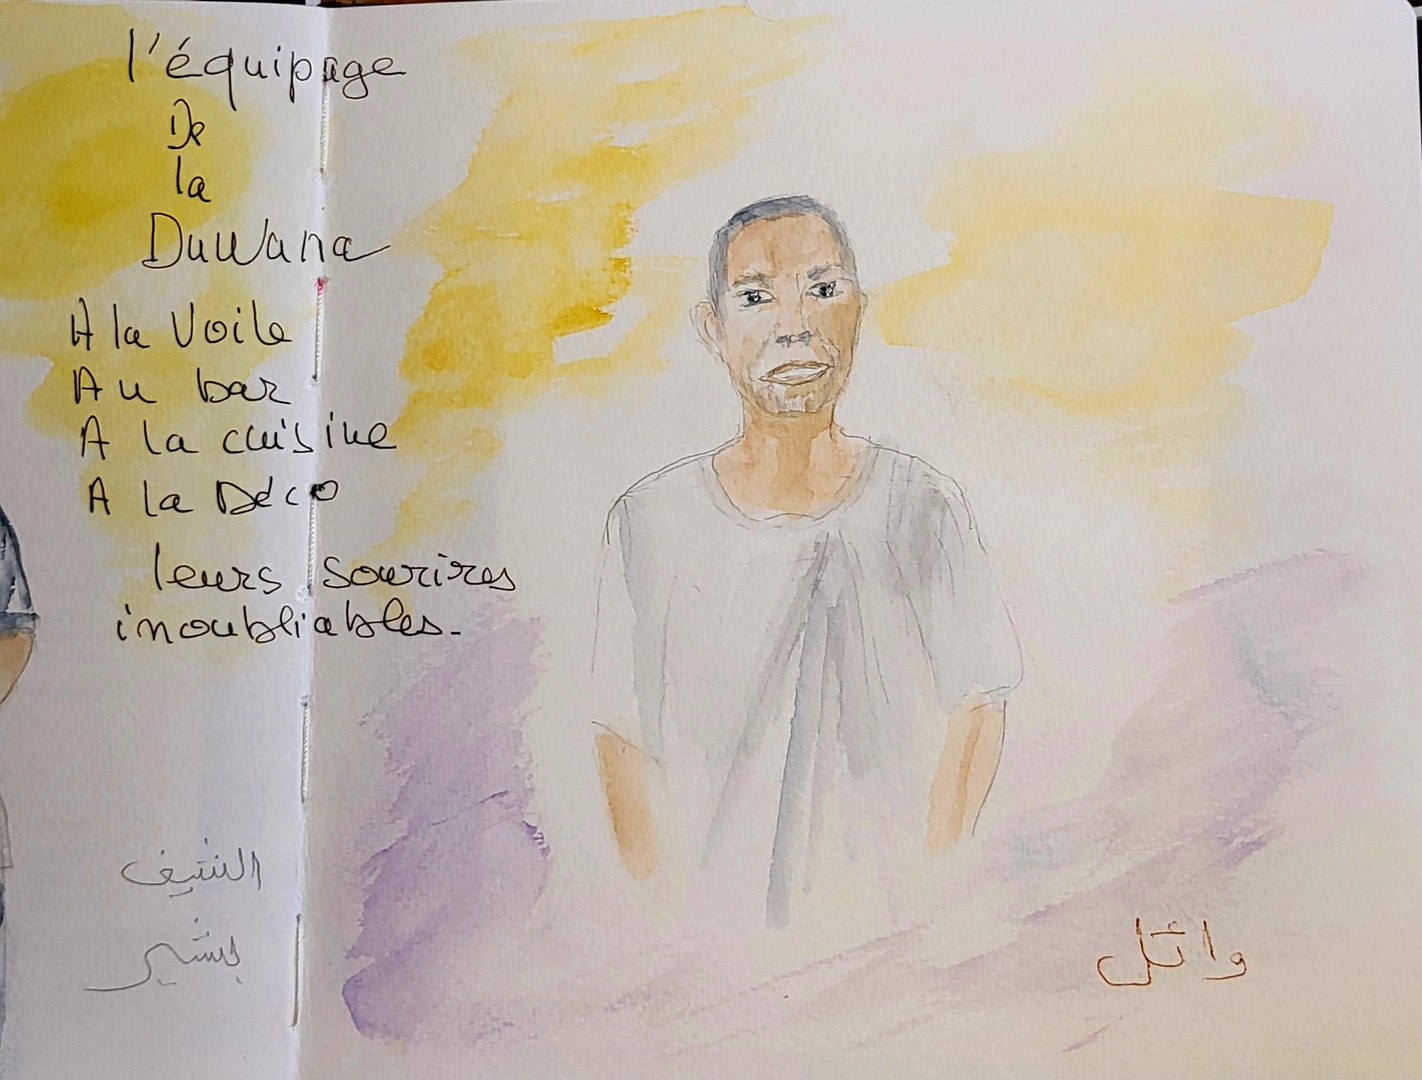 l'équipage
De
la
Duwana
A la Voile
Au bar
A la cuisine
A la Déco
leurs sourires
inoubliables.
الشيف
بشير
وائل